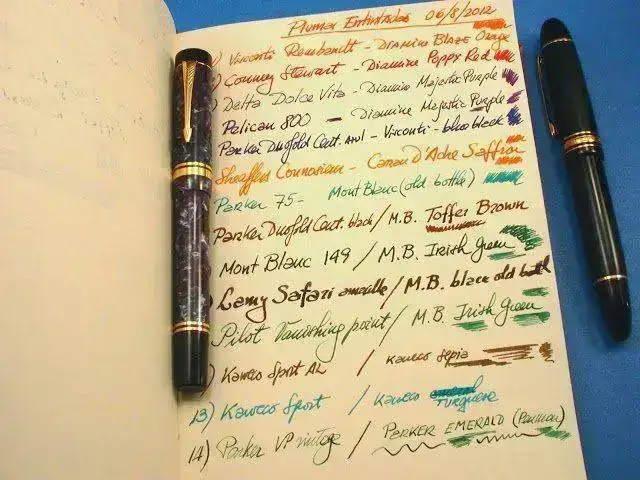 Plumas Entintadas 06/8/2012
) Visconti Rembrandt - Diamine Blaze Orage
) Conway Stewart - Diamine Poppy Red
) Delta Dolce Vita - Diamin Majestic Purple
Pelican 800 - Diamine Majestic Purple
Parker Duofold Cent. azul - Visconti - blue black
Sheaffers Connosieur - Caran D'Ache Saffron
Parker 75 - Mont Blanc (old bottle)
Parker Duofold Cent. black / M.B. Toffee Brown
Mont Blanc 149 / M.B. Irish Green
) Lamy Safari amarillo / M.B. black old bottl
Pilot Vanishing point / M.B. Irish Green
) Kaweco Sport AL / Kaweco Sepia
13) Kaweco Sport / Kaweco Turquese
14) Parker VP vintage / PARKER EMERALD (Penman)